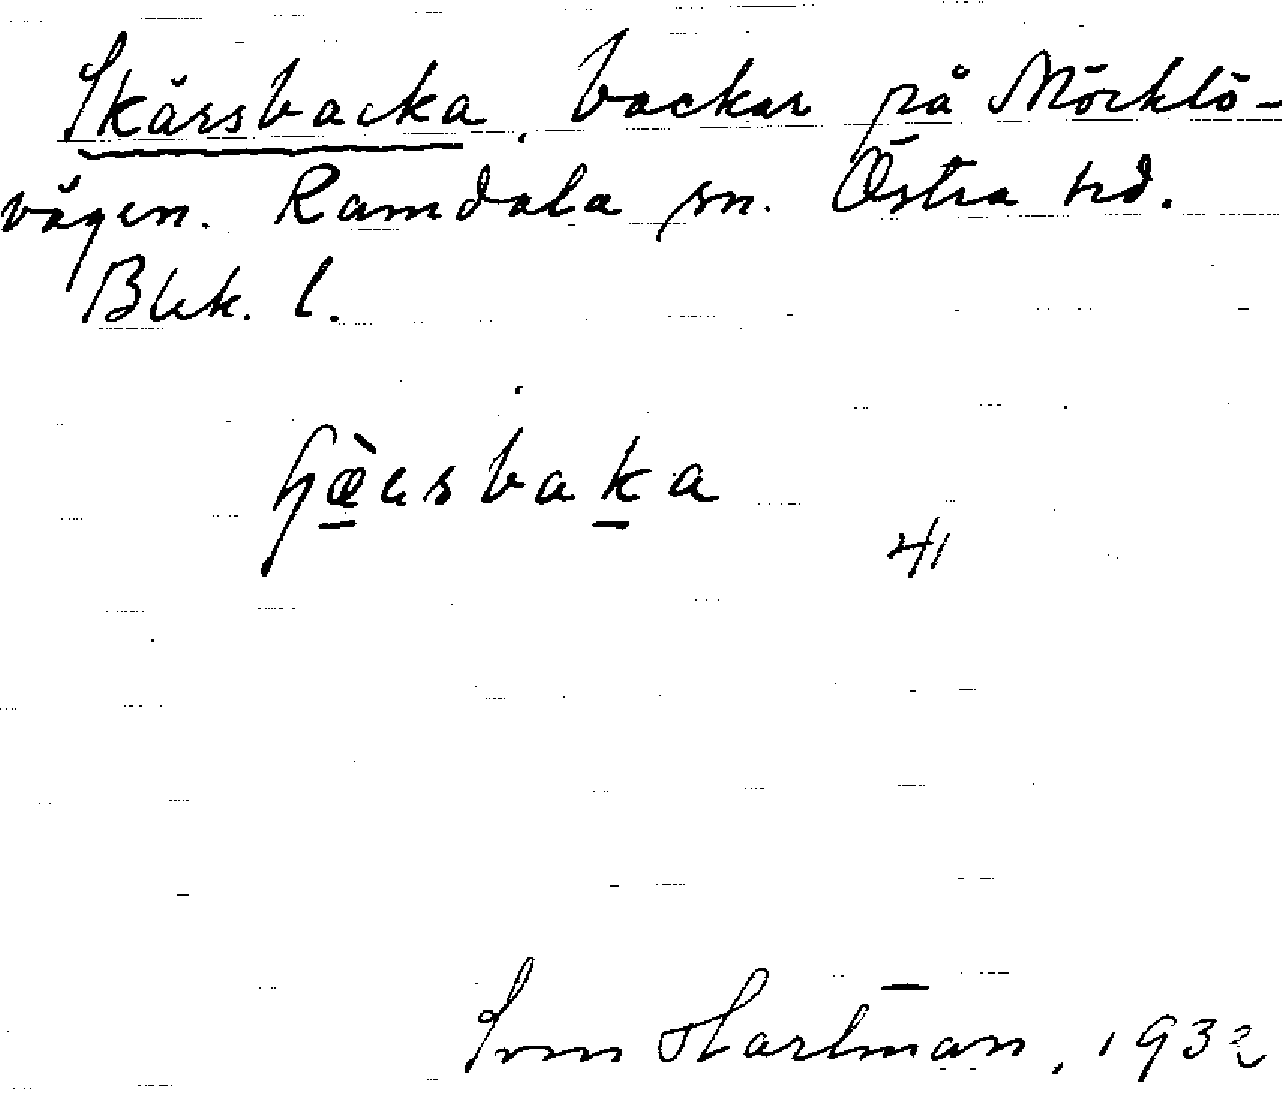 Skärsbacka, backar på Möcklö-
vägen. Ramdala sn. Östra hd.
Blek. l.
41
Sven Hartman, 1932